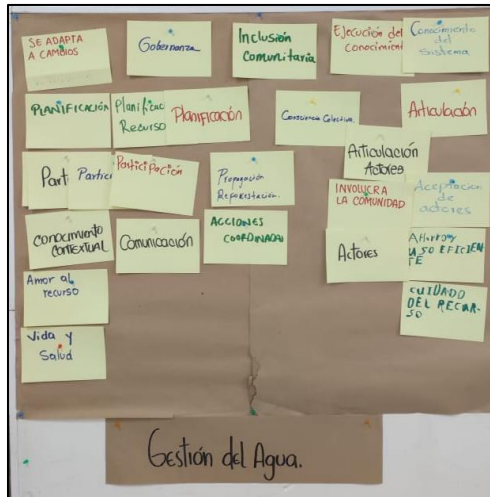 SE ADAPTA
A CAMBIOS
Gobernanza
Inclusión
Comunitaria
Ejecución del
conocimient
Conocimiento
del
Sistema
PLANIFICACIÓN
Planificac
Recurso
Planificación
Consciencia Colectiva.
Articulación
Articulación
Actores
Part
Partici
Participación
Propagación
Reforestación.
INVOLUCRA
LA COMUNIDAD
Aceptacion
de
actores
conocimiento
contextual
Comunicación
ACCIONES
COORDINADAS
Actores
Ahorro y
USO EFICIEN
TE
Amor al
recurso
CUIDADO
DEL RECUR-
SO
Vida y
Salud
Gestión del Agua.